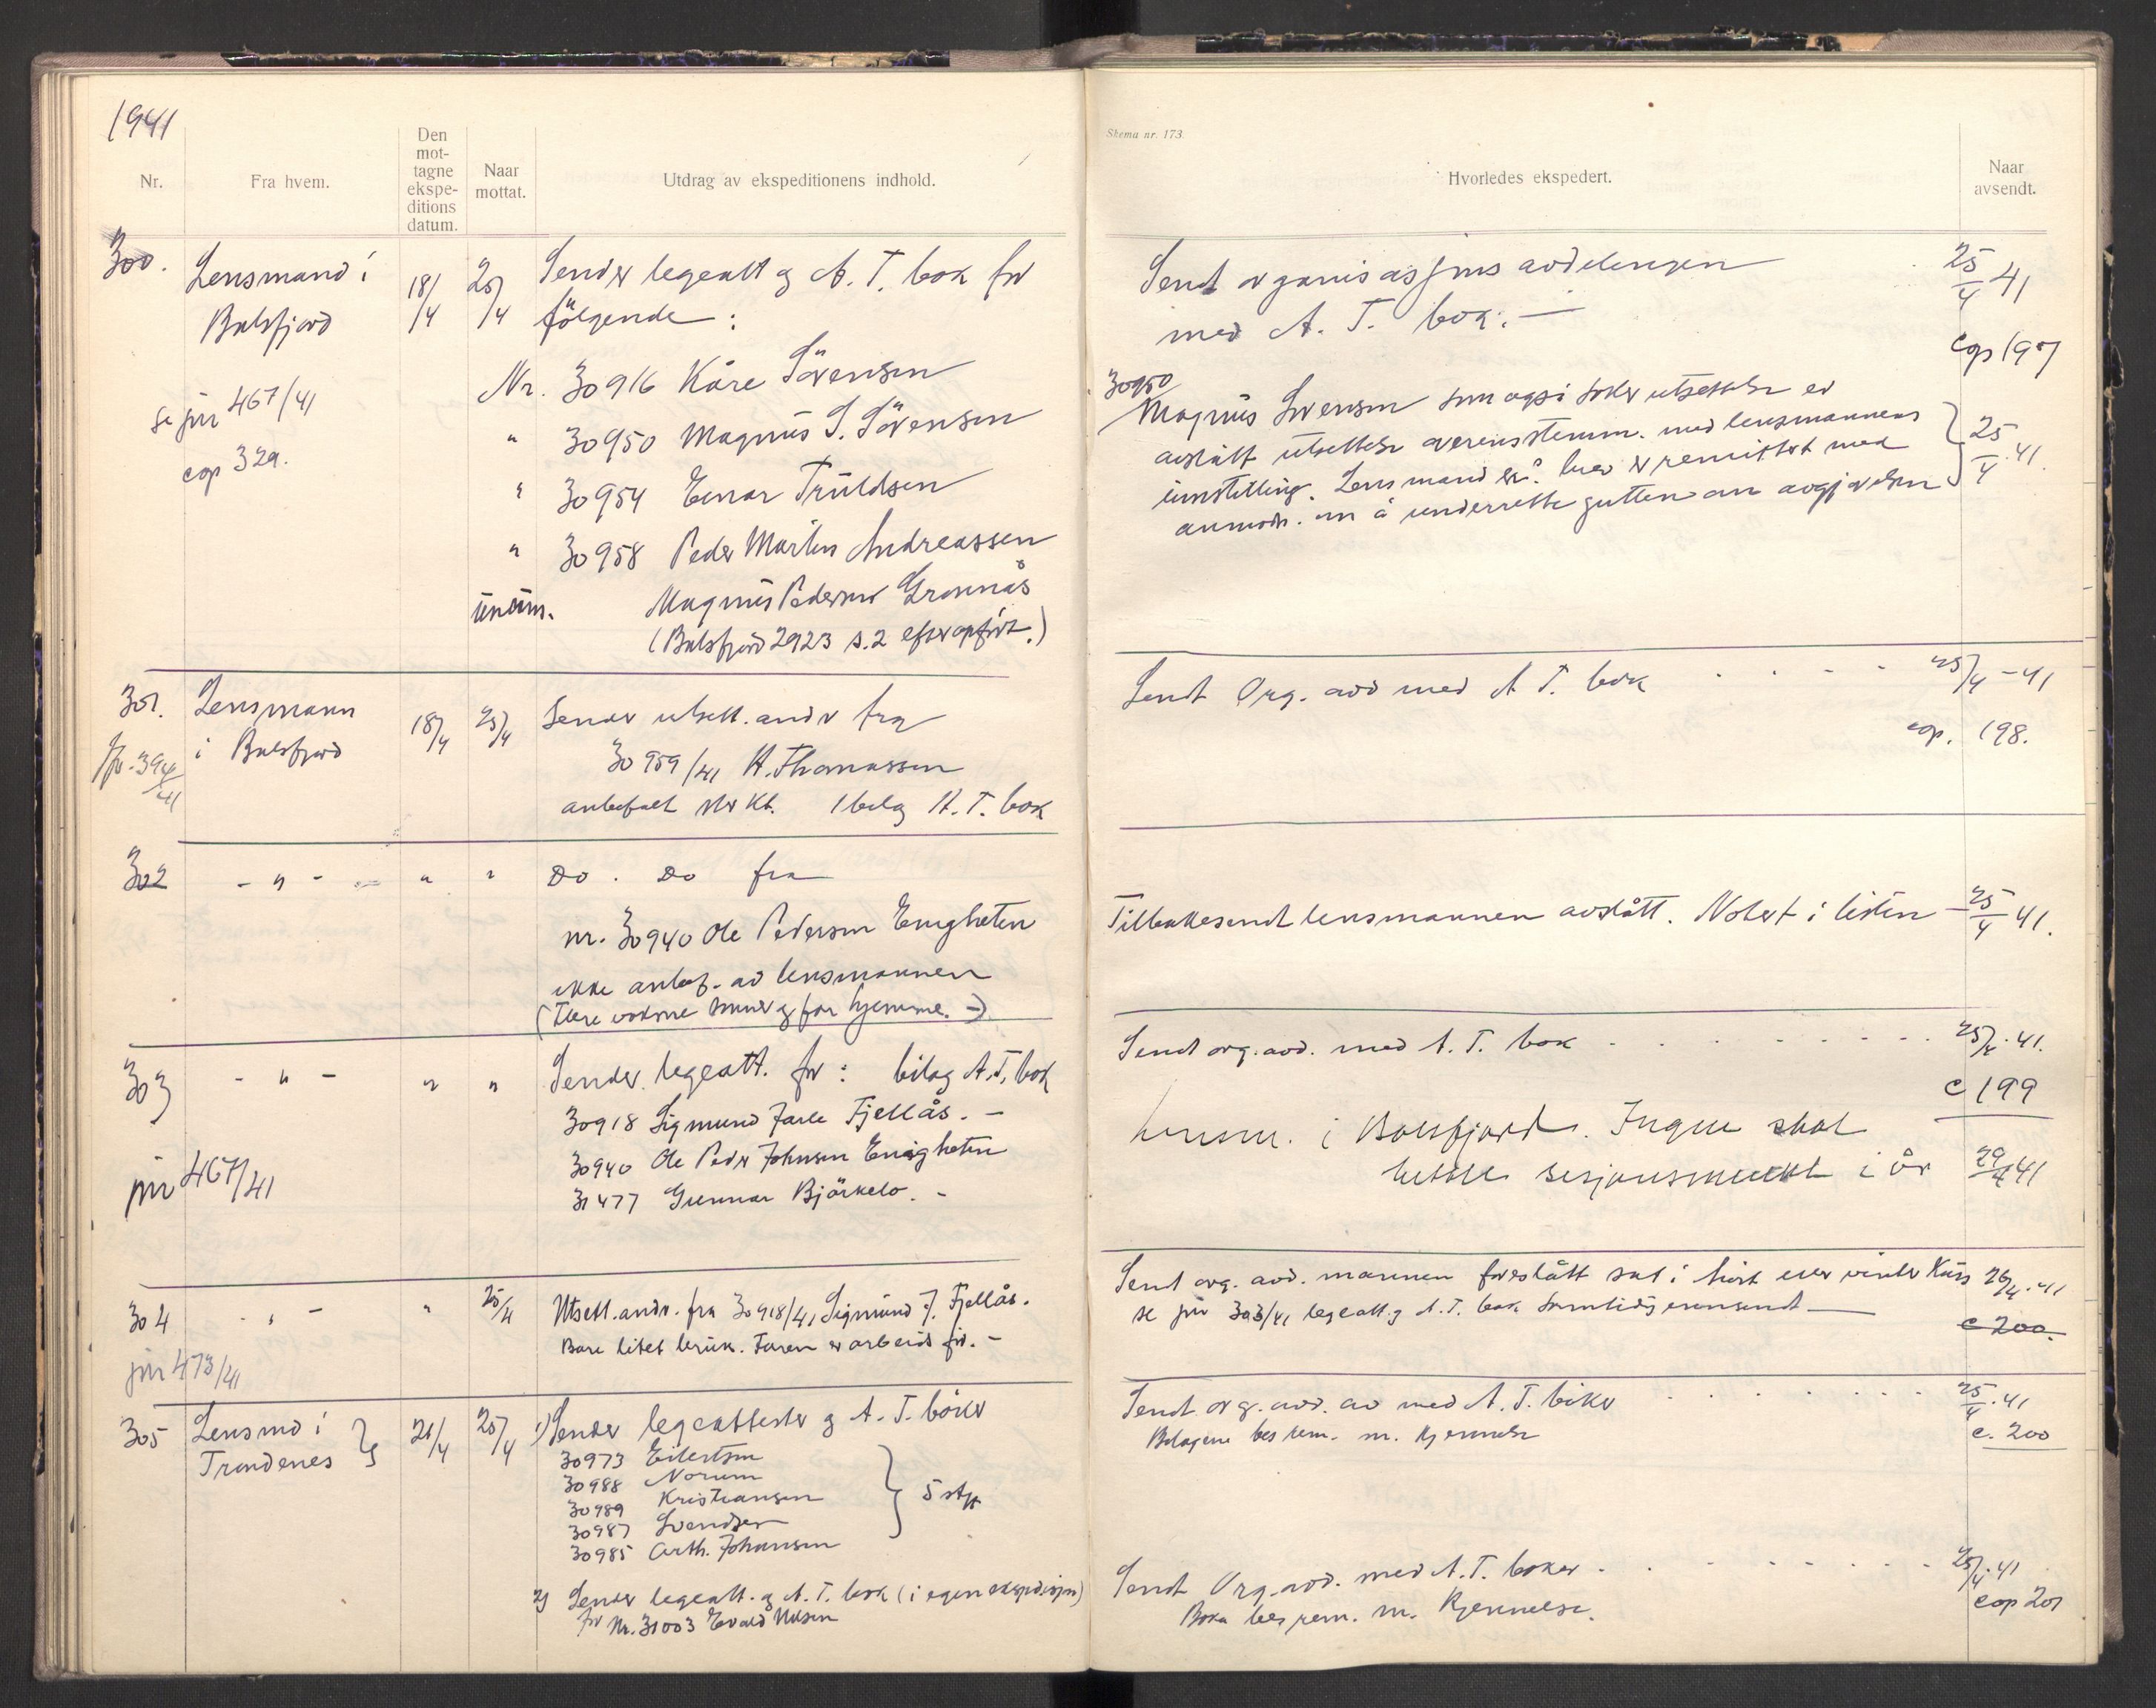 1941
Nr.
Fra hvem.
Den
mot-
tagne
ekspe-
ditions
datum.
Naar
mottat.
Utdrag av ekspeditionens indhold.
300.
Lensmand i
Balsfjord
18/4
25/4
Sender legeatt og A. T. bok for
følgende :
Nr. 30916 Kåre Sörensen
" 30950 Magnus S. Sörensen
" 30954 Einar Truldsen
" 30958 Peder Martin Andreassen
unum. Magnus Pedersen Grønnås
(Balsfjord 2923 s.2 efteropført.)
se jnr 467/41
cop 329.
301.
Lensmann
i Balsfjord
18/4
25/4
Sender utsett. andr fra
30959/41 H. Thomassen
anbefalt 1 bilag A. T. bok
Jfr. 394/41
302
- " -
"
"
Do . Do fra
nr. 30940 Ole Pedersen Enigheten
ikke anbef. av lensmannen
(Flere voksne sønner og far hjemme. -)
303
- " -
"
"
Sender legeatt. for : bilag A.T. bok
30918 Sigmund Jarle Fjellås. -
30940 Ole Peder Johnsen Enigheten
31477 Gunnar Björkelo. -
jnr 467/41
304
- " -
"
25/4
Utsett. andr. fra 30918/41 Sigmund J. Fjellås.
Bare litet bruk. Faren er arbeids før. -
jnr 473/41
305
Lensmd i
Trondenes
21/4
25/4
1) Sender legeattester og A. T. böker
30973 Eilertsen
30988 Norum
30989 Kristiansen
30987 Svendsen
30985 Arth. Johansen
5 stk
2) Sender legeatt. og A. T. bok (i egen ekspedisjon)
for Nr. 31003 Evald Nilsen
Skema nr. 173.
Hvorledes ekspedert.
Naar
avsendt.
Sendt organisasjons avdelingen
med A. T. bok. —
25/4 41
cop 197
30950
Magnus Sørensen som også søker utsettelse er
avslått utsettelse overensstemm. med lensmannens
innstilling. Lensmandens brev er remittert med
anmodn. om å underrette gutten om avgjørelsen
25/4 41.
Sendt Org. avd med A T. bok . . - -
25/4 - 41
cop. 198.
Tilbakesendt lensmannen avslått. Notert i listen —
25/4 41.
Sendt org. avd. med A. T. bok . . . . . . .
25/4. 41.
c 199
Lensm. i Balsfjord. Ingen skal
sesjonsmøtet i år
29/4 41
Sent org. avd. mannen foreslått sat i høst eller vinter kurs
26/4. 41
se jnr 303/41 legeatt. og A. T. bok samtidig oversendt —
c 200.
Sendt org. avd. av med A. T. böker . . . . . .
25/4. 41
Bilagene bes rem. m. kjennelse
c. 200
Sendt Org. avd. med A. T. boker . . . . . .
25/4. 41
Boka bes rem. m. Kjennelse.
cop 201